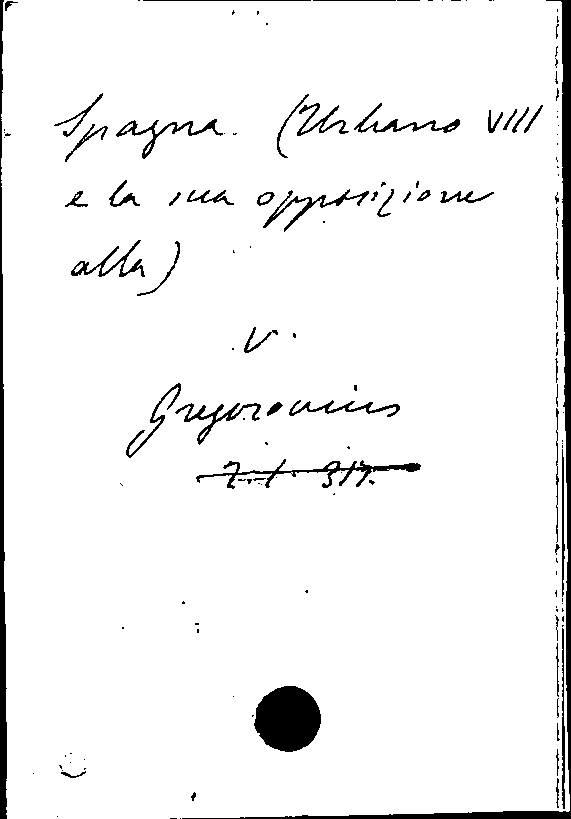 Spagna. (Urbano VIII
e la sua opposizione
alla)
v.
Gregorovius